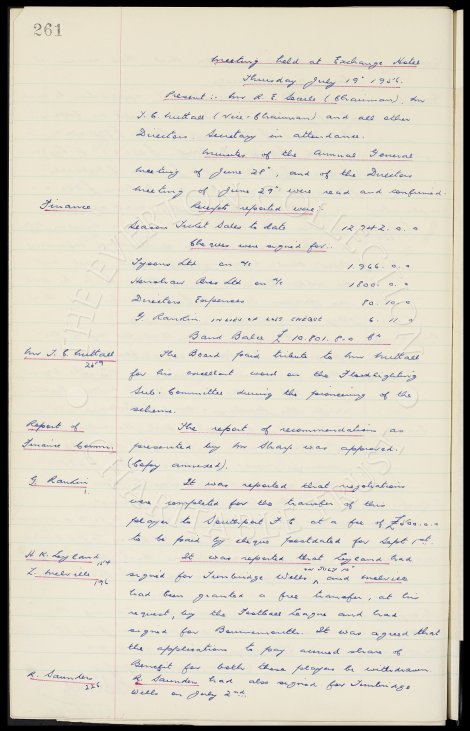 261
Meeting held at Exchange Hotel
Thursday July 19th 1956.
Present :- Mr R. E. Searle (Chairman), Mr
T. C. Nuttall (Vice-Chairman) and all other
Directors. Secretary in attendance.
Minutes of the Annual General
Meeting of June 28th, and of the Directors
Meeting of June 29th were read and confirmed.
Finance
Receipts reported were :-
Season Ticket Sales to date 12,742. 0. 0
Cheques were signed for :-
Tysons Ltd on a/c 1,966. 0. 0
Henshaw Bros Ltd on a/c 1800. 0. 0
Directors Expenses 80. 10. 0
G. Rankin IN LIEU OF LOST CHEQUE 6. 11. 0
Bank Balce £ 10.801. 8. 0
Mr T. C. Nuttall
The Board paid tribute to Mr Nuttall
for his excellent work on the Floodlighting
Sub-Committee during the pioneering of the
scheme.
Report of
Finance Comm.
The report of recommendations as
presented by Mr Sharp was approved.
(Copy annexed).
G. Rankin
It was reported that negotiations
were completed for the transfer of this
player to Southport F C at a fee of £500.0.0
to be paid by cheque postdated for Sept 1st.
H. R. Leyland
L. Melville
It was reported that Leyland had
signed for Tunbridge Wells ON JULY and Melville
had been granted a free transfer, at his
request, by the Football League and had
signed for Bournemouth. It was agreed that
the applications to pay accrued share of
Benefit for both these players be withdrawn.
R. Saunders
R. Saunders had also signed for Tunbridge
Wells on July 2nd.